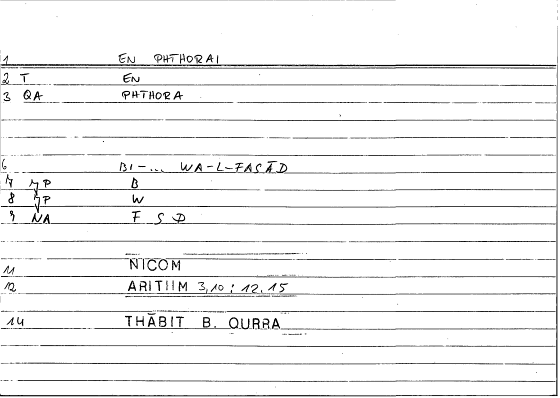 1 EN PHTHORAI
2 T EN
3 QA PHTHORA
6 BI-... WA-L-FASĀD
7 ϟP B
8 ϟP W
9 NA F S D
11 NICOM
12 ARITIIM 3,10 : 12.15
14 THĀBIT B. QURRA